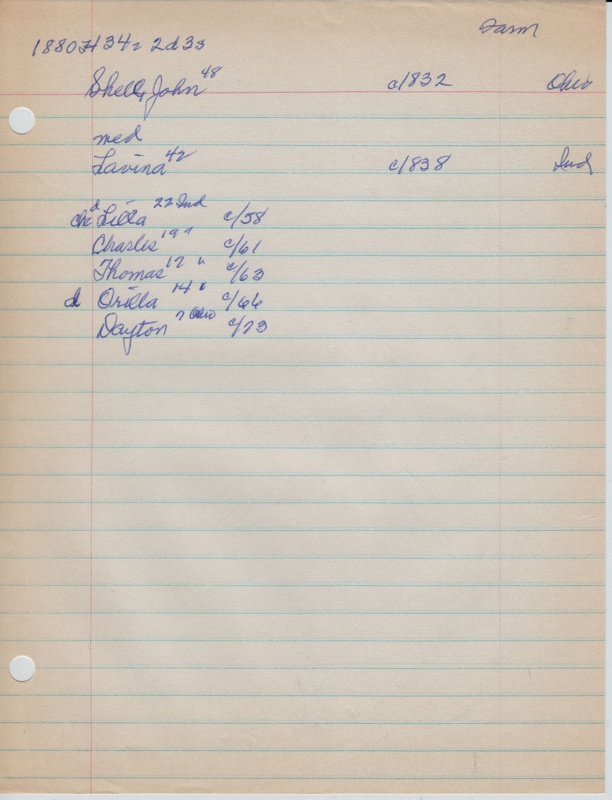 Farm
1880 H 342 2d 33
Shell, John 48 c/1832 Ohio
med
Lavina 42 c/1838 Ind
ch d Lilla 22 Ind c/58
Charles 19 " c/61
Thomas 17 " c/63
d Orilla 14 " c/66
Dayton 7 Ohio c/73